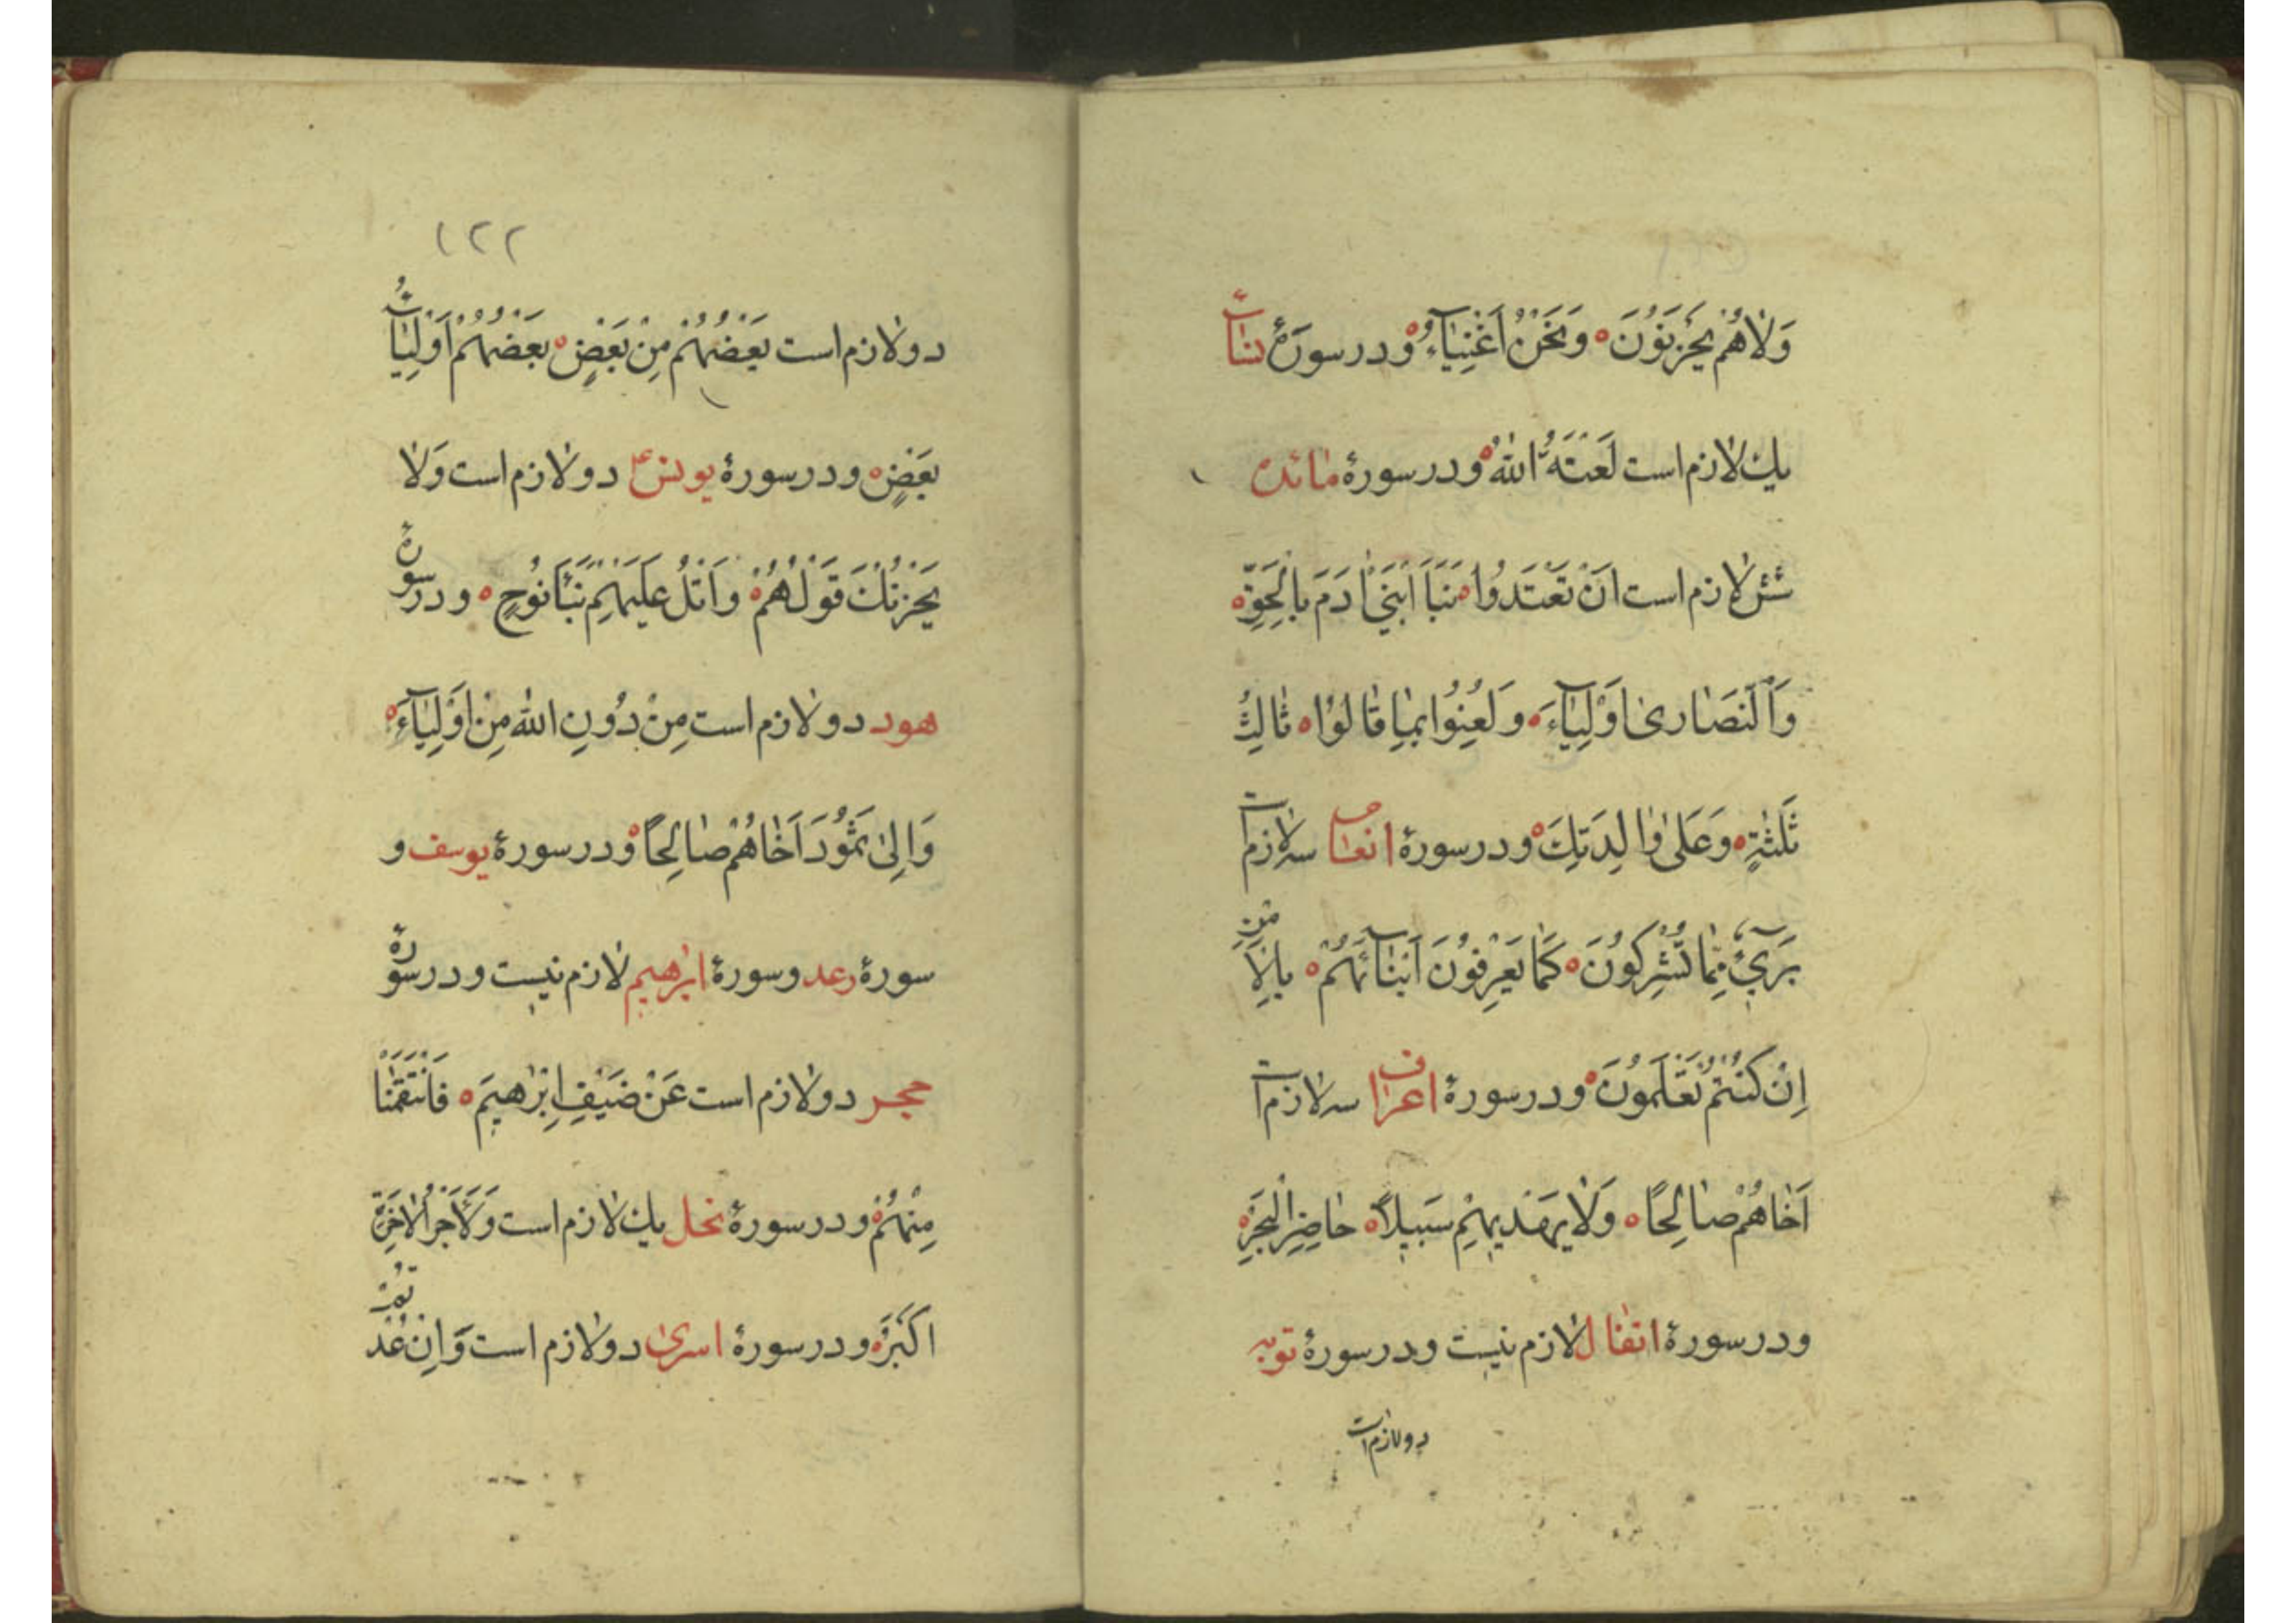 وَلَاهُمْ يَحْزَنُوْنَ ه وَنَحْنُ اَغْنِيَآءُ ه ودر سورۀ نسآ
يك لازم است لَعَنَهُ اللّٰهُ ه ودر سورۀ مائده
شش لازم است اَنْ تَعْتَدُوا ه نَبَاَ ابْنَيْ اٰدَمَ بِالْحَقِّ ه
وَالنَّصَارىٰ اَوْلِيَآءَ ه وَلُعِنُوا بِمَا قَالُوْا ه ثَالِثُ
ثَلٰثَةٍ ه وَعَلىٰ وَالِدَتِكَ ه ودر سورۀ انعام سه لازم است
بَرِيْٓءٌ مِمَّا تُشْرِكُوْنَ ه كَمَا يَعْرِفُوْنَ اَبْنَآئَهُمْ ه بِالْاَمْنِ
اِنْ كُنْتُمْ تَعْلَمُوْنَ ه ودر سورۀ اعراف سه لازم است
اَخَاهُمْ صَالِحًا ه وَلَا يَهْدِيْهِمْ سَبِيْلًا ه حَاضِرَةَ الْبَحْرِ ه
ودر سورۀ انفال لازم نيست ودر سورۀ توبه
دو لازم است
١٢٢
دو لازم است بَعْضُهُمْ مِنْ بَعْضٍ ه بَعْضُهُمْ اَوْلِيَآءُ
بَعْضٍ ه ودر سورۀ يونس ع دو لازم است وَلَا
يَحْزُنْكَ قَوْلُهُمْ ه وَاتْلُ عَلَيْهِمْ نَبَاَ نُوْحٍ ه ودر سورۀ
هود دو لازم است مِنْ دُوْنِ اللّٰهِ مِنْ اَوْلِيَآءَ ه
وَاِلىٰ ثَمُوْدَ اَخَاهُمْ صَالِحًا ه ودر سورۀ يوسف و
سورۀ رعد وسورۀ ابرٰهيم لازم نيست ودر سورۀ
حجر دو لازم است عَنْ ضَيْفِ اِبْرٰهيمَ ه فَانْتَقَمْنَا
مِنْهُمْ ه ودر سورۀ نحل يك لازم است وَلَاَجْرُ الْاٰخِرَةِ
اَكْبَرُ ه ودر سورۀ اسرىٰ دو لازم است وَاِنْ عُدْتُمْ